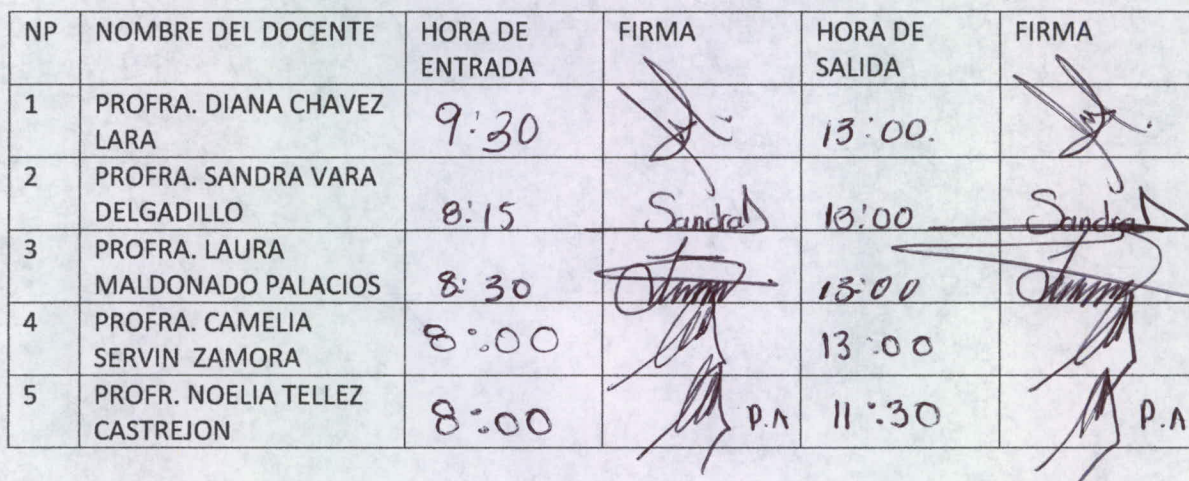 NP NOMBRE DEL DOCENTE HORA DE FIRMA HORA DE FIRMA
ENTRADA SALIDA
1 PROFRA. DIANA CHAVEZ
LARA 9:30 13:00.
2 PROFRA. SANDRA VARA
DELGADILLO 8:15 SandraD 13:00 SandraD
3 PROFRA. LAURA
MALDONADO PALACIOS 8:30 13:00
4 PROFRA. CAMELIA
SERVIN ZAMORA 8:00 13:00
5 PROFR. NOELIA TELLEZ
CASTREJON 8:00 P.A 11:30 P.A